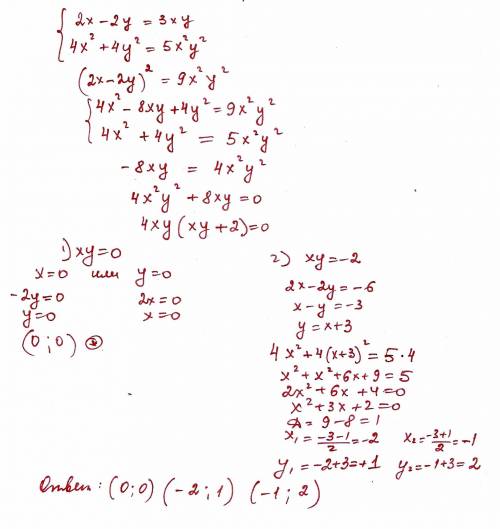 { 2x − 2y = 3xy
{ 4x² + 4y² = 5x²y²
(2x − 2y)² = 9x²y²
{ 4x² − 8xy + 4y² = 9x²y²
{ 4x² + 4y² = 5x²y²
−8xy = 4x²y²
4x²y² + 8xy = 0
4xy (xy + 2) = 0
1) xy = 0
x = 0 или y = 0
−2y = 0 2x = 0
y = 0 x = 0
(0 ; 0)
2) xy = −2
2x − 2y = −6
x − y = −3
y = x + 3
4x² + 4(x + 3)² = 5 · 4
x² + x² + 6x + 9 = 5
2x² + 6x + 4 = 0
x² + 3x + 2 = 0
D = 9 − 8 = 1
x₁ = (−3 − 1)/2 = −2 x₂ = (−3 + 1)/2 = −1
y₁ = −2 + 3 = +1 y₂ = −1 + 3 = 2
Ответ : (0 ; 0) (−2 ; 1) (−1 ; 2)